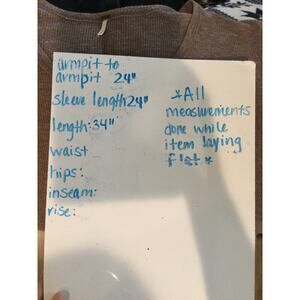 armpit to
armpit 24"
sleeve length 24"
length: 34"
waist
hips:
inseam:
rise:
*All
measurements
done while
item laying
flat *